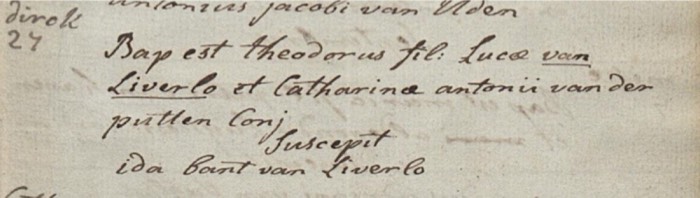 Antonius Jacobi van Uden
dirok
27
Bap est theodorus fil: Lucæ van
Liverlo et Catharinæ antonii van der
putten Conj
Suscepit
ida bant van Liverlo